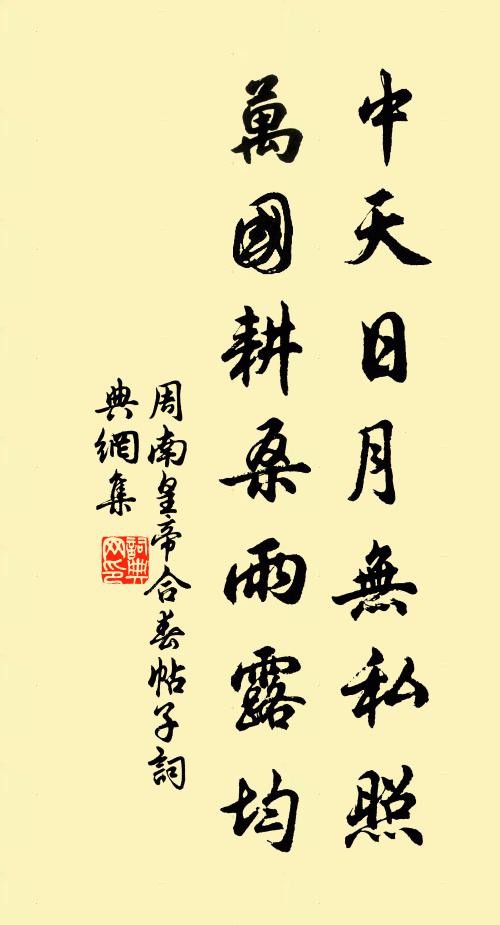 中天日月無私照
萬國耕桑雨露均
周南皇帝合春帖子詞
典網集
詞典網印